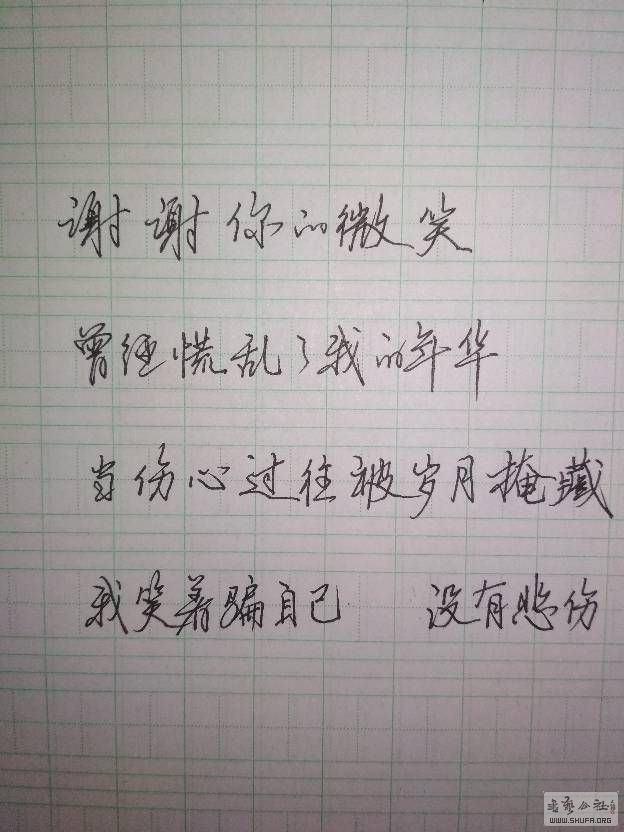 谢谢你的微笑
曾经慌乱了我的年华
当伤心过往被岁月掩藏
我笑着骗自己 没有悲伤
WWW.SHUFA.ORG